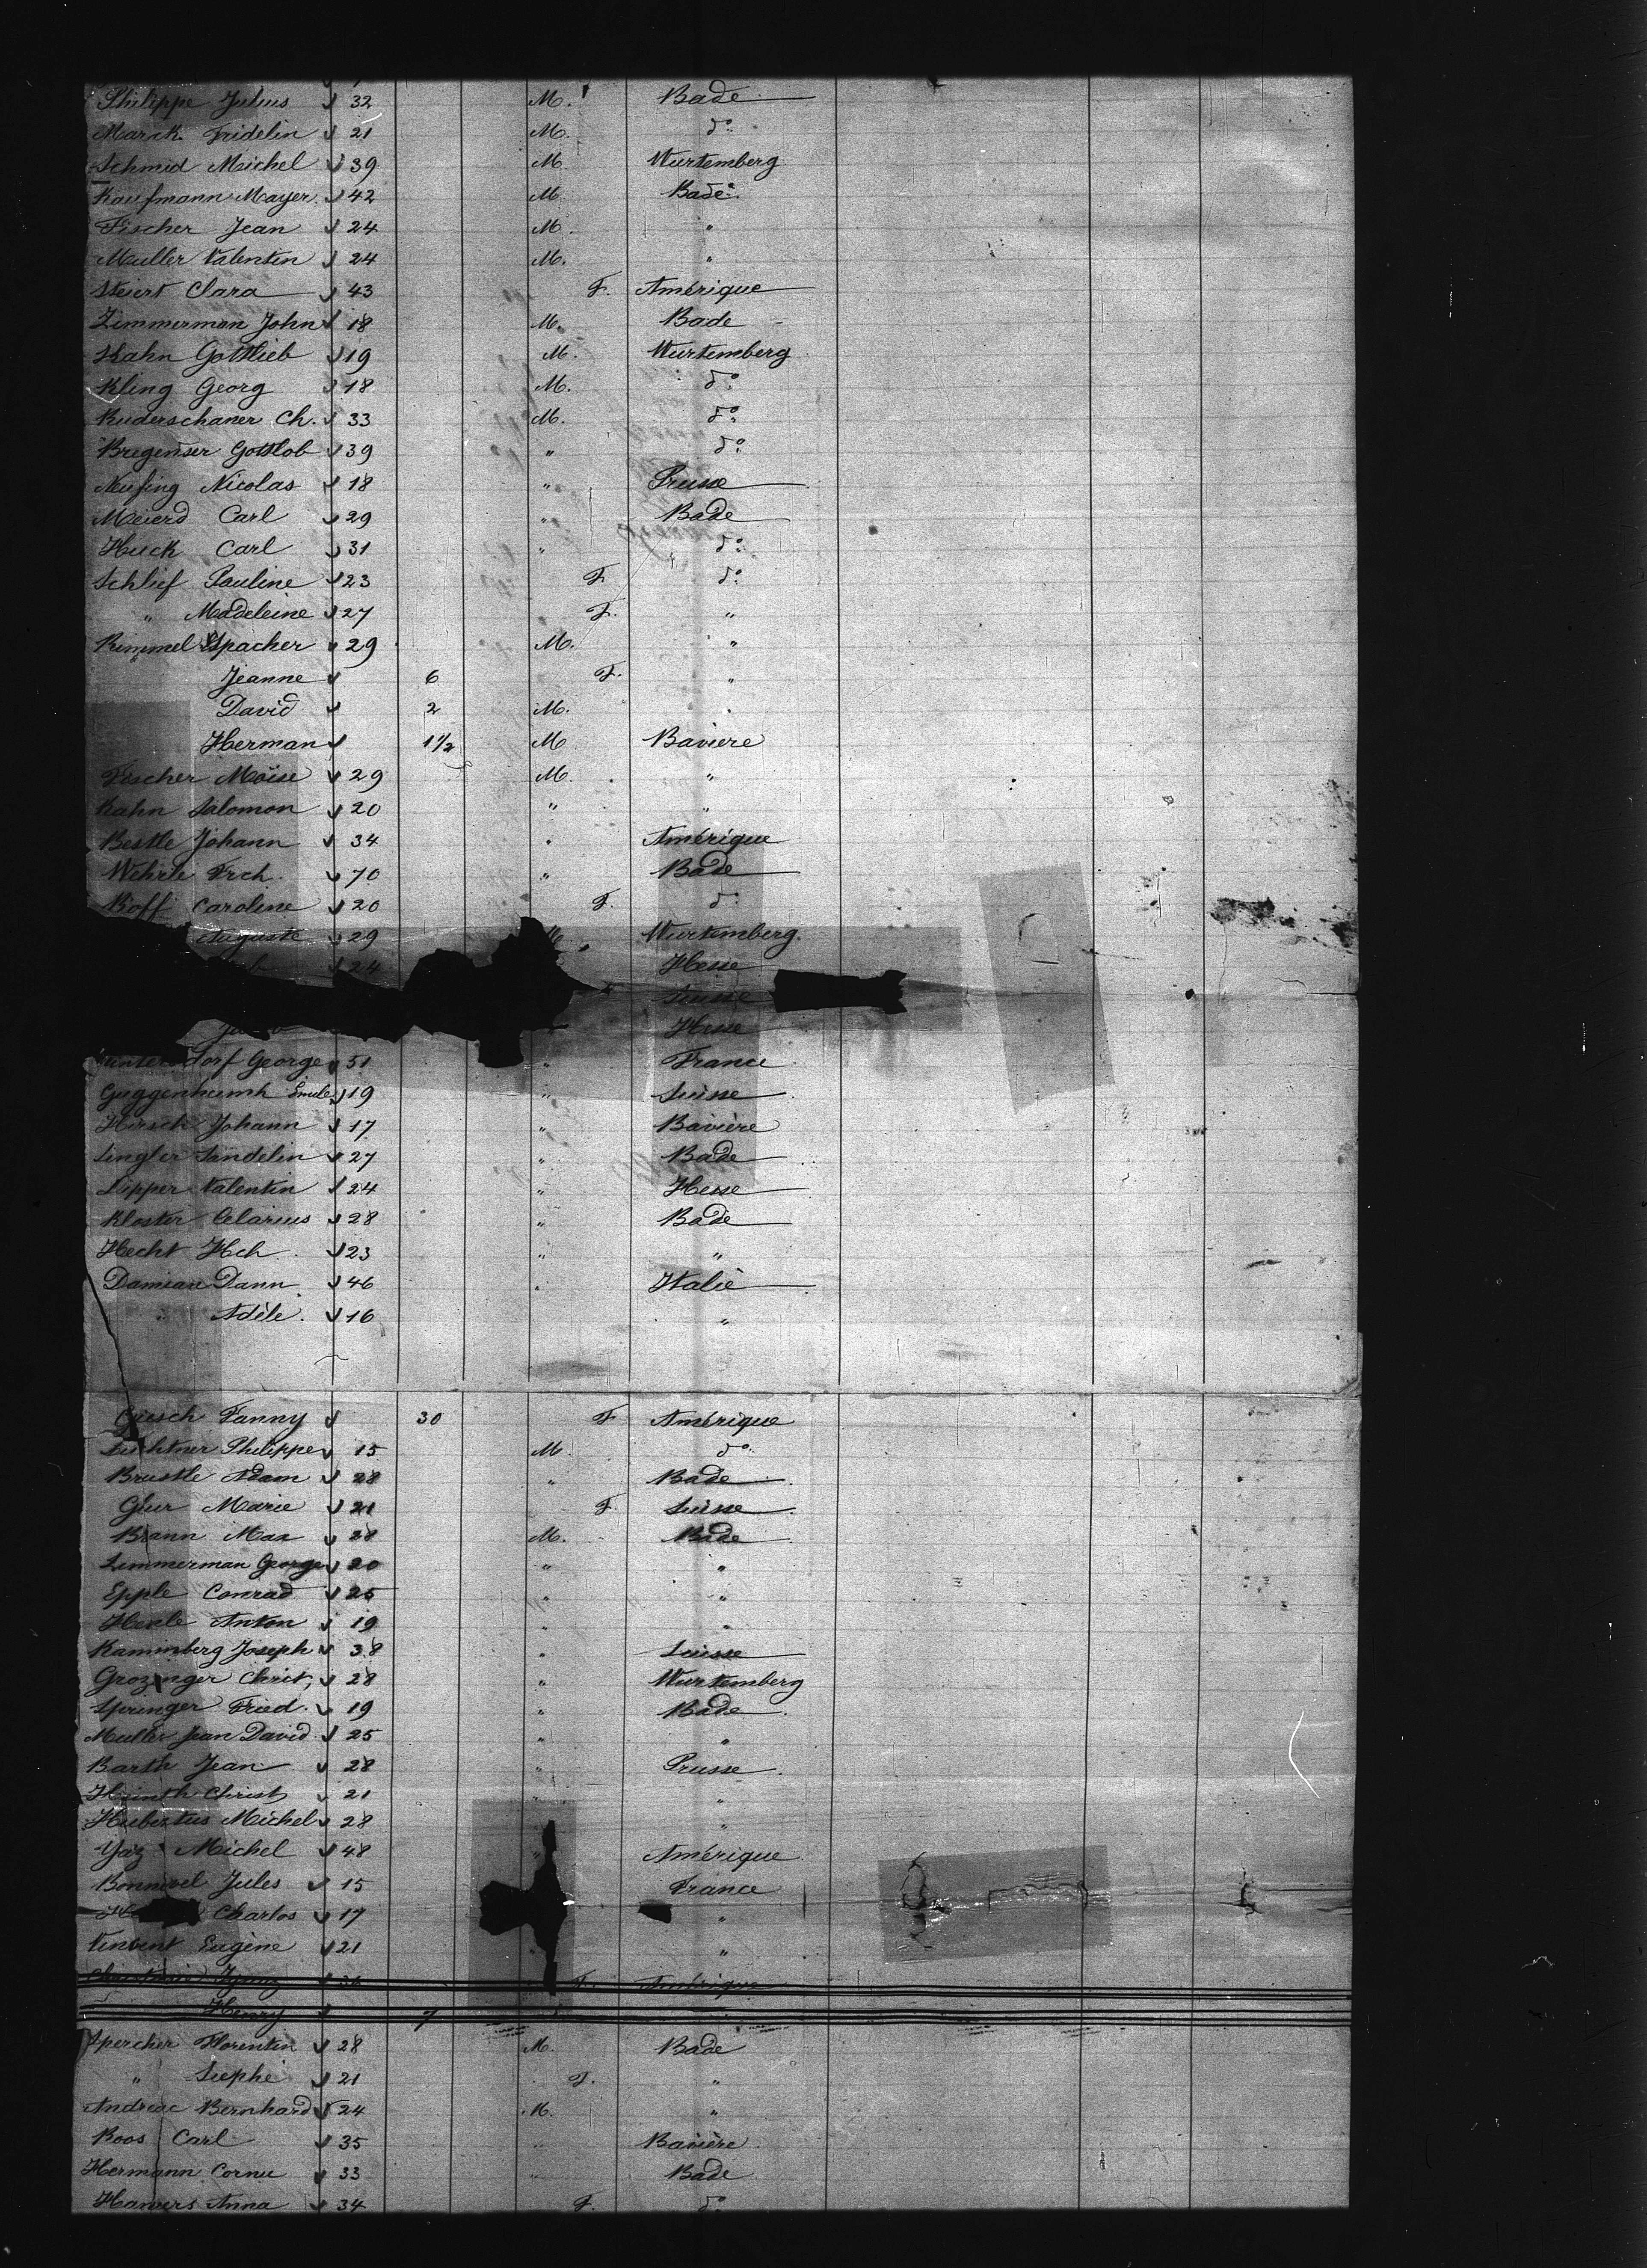 Philippe Julius 32 M. Bade
Marck Fridelin 21 M. do
Schmid Michel 39 M Wurtemberg
Kaufmann Mayer 42 M Bade
Fischer Jean 24 M. "
Muller Valentin 24 M. "
Steiert Clara 43 F. Amérique
Zimmerman John 18 M. Bade
Kahn Gottlieb 19 M. Wurtemberg
Kling Georg 18 M. do
Ruderschaner Ch. 33 M. do
Bregenser Gottlob 39 " do
Nicolas 18 " Prusse
Meierd Carl 29 " Bade
Huck Carl 31 " do
Schlief Pauline 23 F do
" Madeleine 27 F. "
Kimmel 29 M. "
Jeanne 6 F. "
David 2 M. "
Herman 1 1/2 M Baviere
Fischer Moïse 29 M. "
Kahn Salomon 20 " "
Bestle Johann 34 " Amérique
Wehrle Frch. 70 " Bade
Boff Caroline 20 F. do
Auguste 29 M Wurtemberg
24 Hesse
Suisse
Hesse
George 51 " France
19 " Suisse
Hirsch Johann 17 " Bavière
Singler Sandelin 27 " Bade
Lipper Valentin 24 " Hesse
Kloster 28 " Bade
Hecht Hch. 23 " "
Damian Dann 46 " Italie
" Adèle. 16 "
Fanny 30 F Amérique
Philippe 15 M do
Brustle Adam 28 " Bade
Marie 21 F. Suisse
Brann Max 28 M. Bade
Zimmerman George 20 " "
Epple Conrad 25 " "
Anton 19 " "
Kaminberg Joseph 38 " Suisse
Grozinger Christ, 28 " Wurtemberg
Springer Fried. 19 " Bade
Muller Jean David 25 " "
Barth Jean 28 " Prusse
Christ 21 " "
Hubertus Michel 28 "
Michel 48 " Amérique
Jules 15 France
Charles 17 "
Vincent Eugène 21 "
F. Amérique
Henry 7
Spercher Florentin 28 M. Bade
" 21 F. "
Andreae Bernhard 24 M. "
Roos Carl 35 " Bavière
Hermann Cornu 33 " Bade
Anna 34 F. do